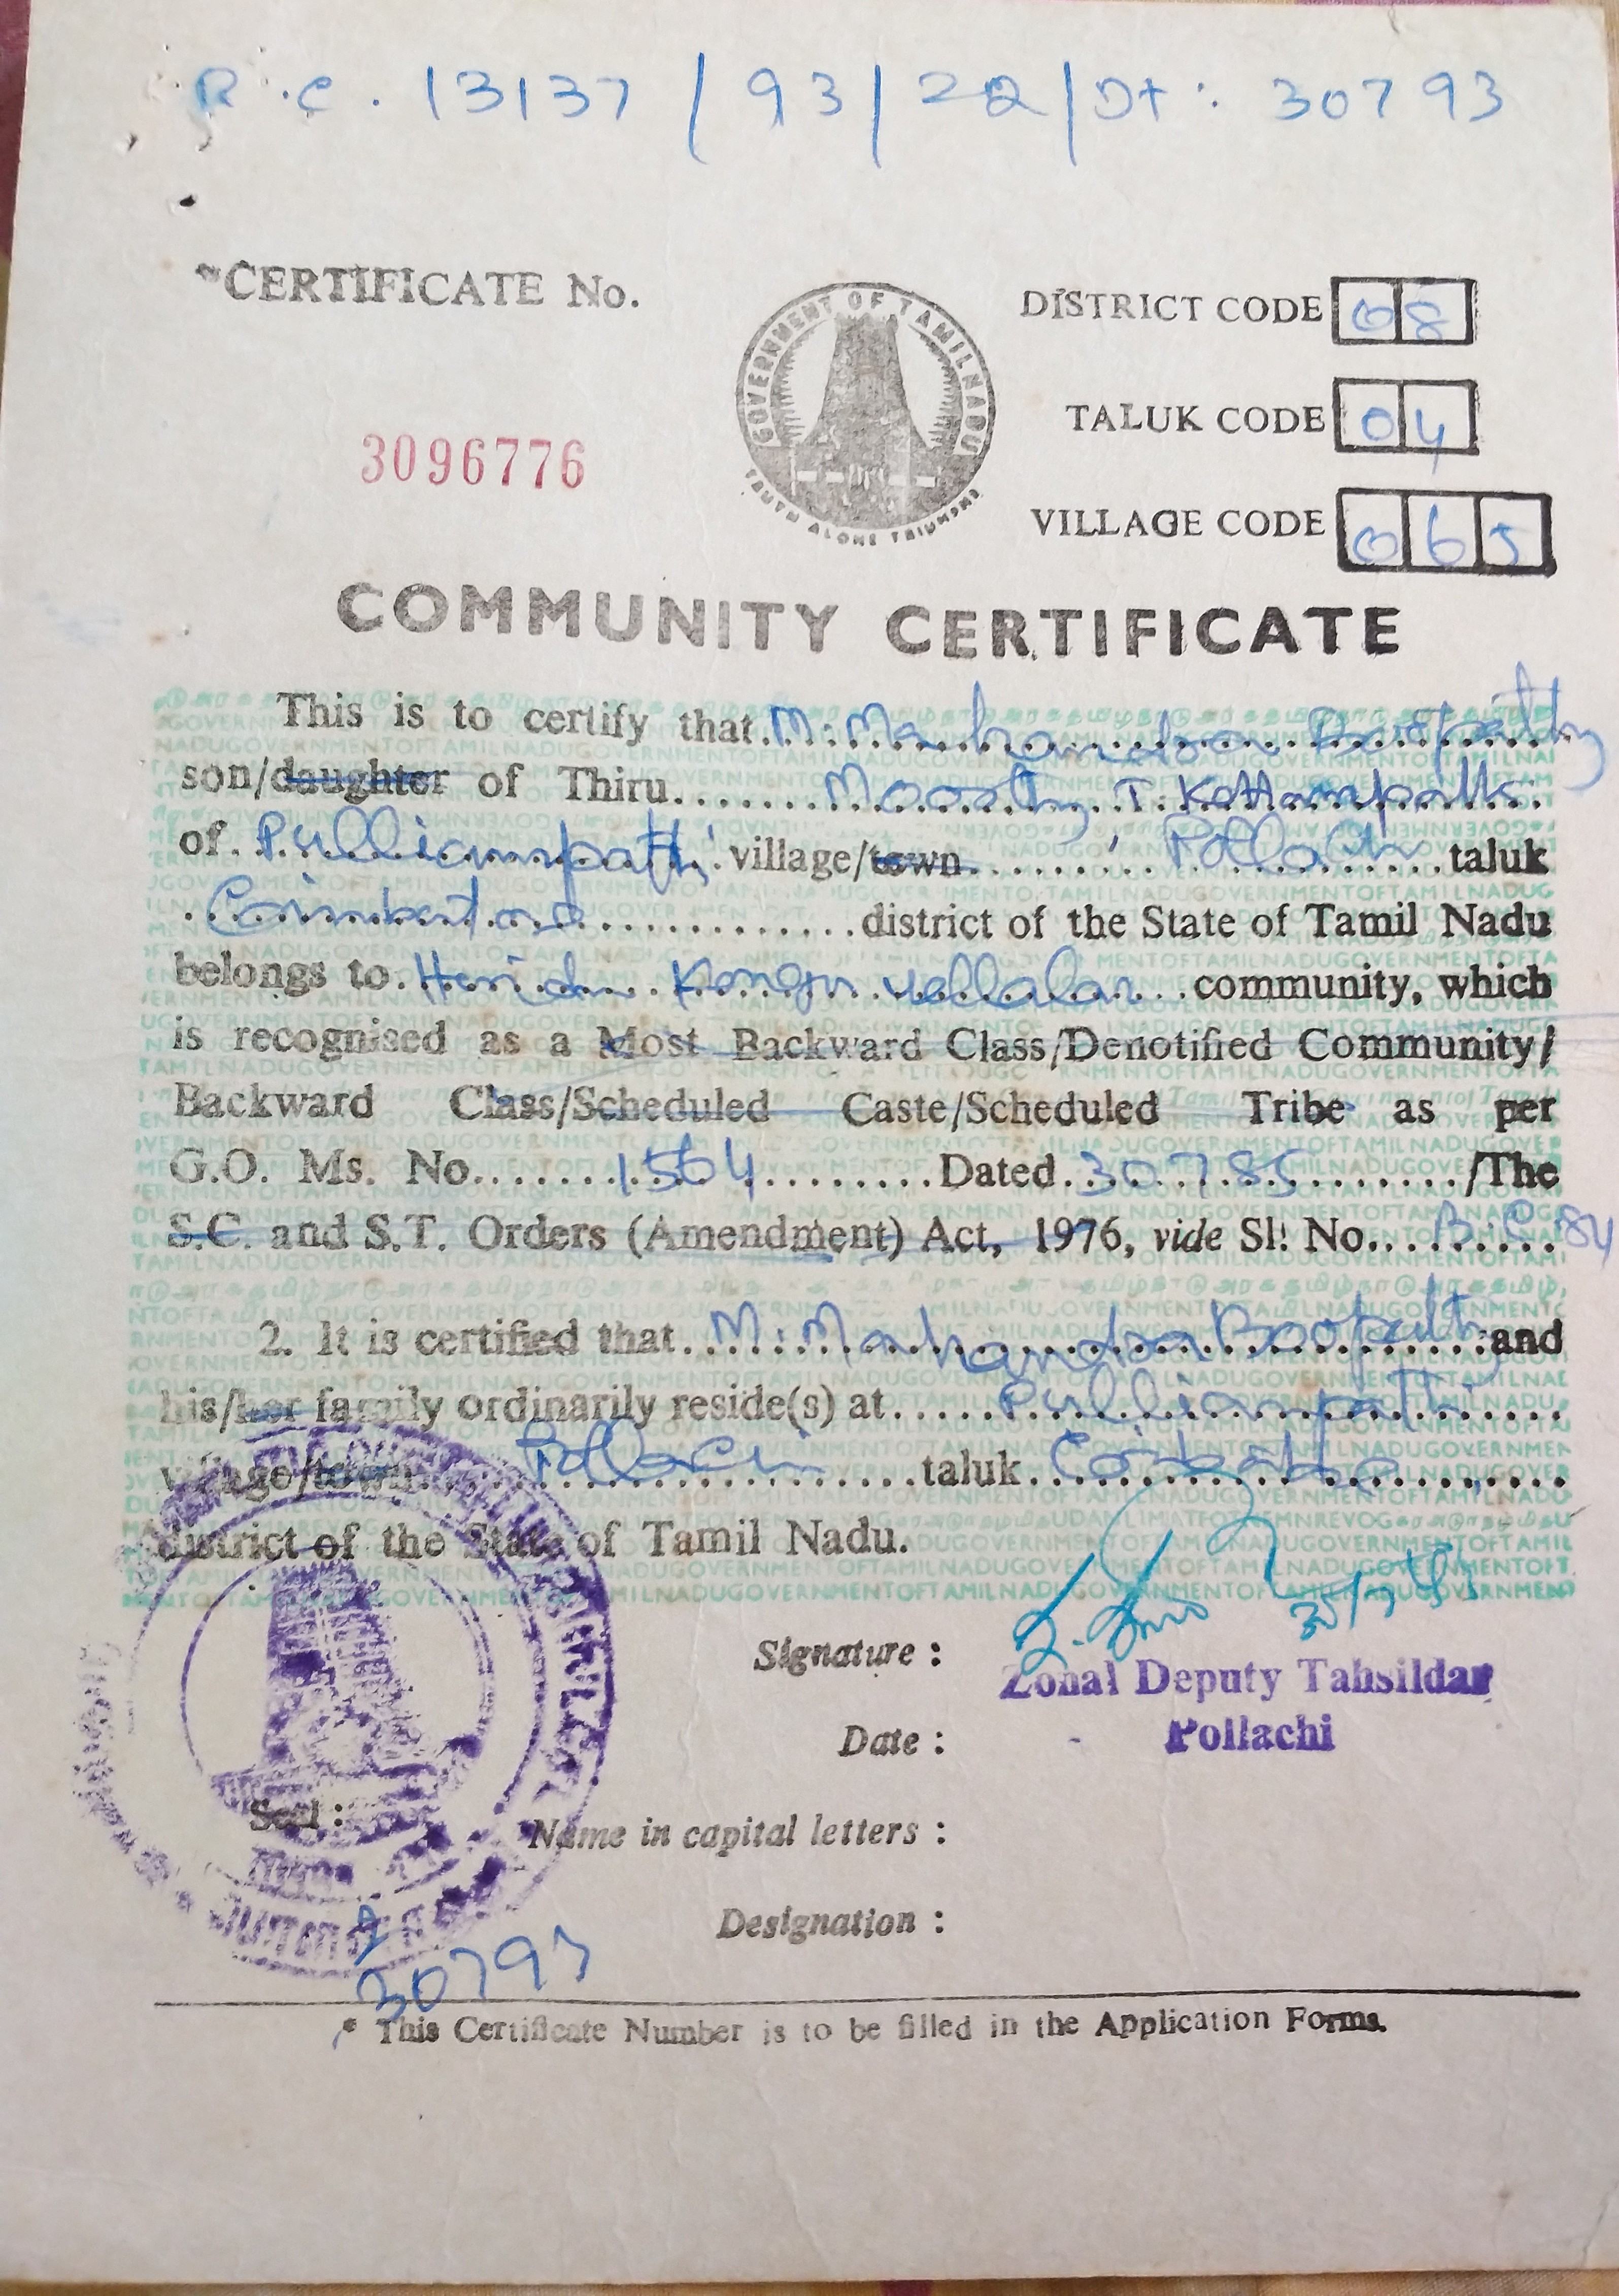 R.C. 13137 / 93 / 22 / Dt: 30 7 93
*CERTIFICATE No.
3096776
GOVERNMENT OF TAMILNADU
TRUTH ALONE TRIUMPHS
DISTRICT CODE 08
TALUK CODE 04
VILLAGE CODE 065
COMMUNITY CERTIFICATE
This is to certify that M. Mahendra Boopathy
son/daughter of Thiru Moorthy T. Kottampatti
of Pulliampatti village/town Pollachi taluk
Coimbatore district of the State of Tamil Nadu
belongs to Hindu Kongu vellalar community, which
is recognised as a Most Backward Class/Denotified Community/
Backward Class/Scheduled Caste/Scheduled Tribe as per
G.O. Ms. No. 1564 Dated 30 7 85 /The
S.C. and S.T. Orders (Amendment) Act, 1976, vide Sl. No. B.C 84
2. It is certified that M. Mahendra Boopathy and
his/her family ordinarily reside(s) at Pulliampatti
village/town Pollachi taluk Coimbatore
district of the State of Tamil Nadu.
30/7/93
Signature :
Zonal Deputy Tahsildar
Pollachi
Date :
Seal :
Name in capital letters :
Designation :
30 7 93
* This Certificate Number is to be filled in the Application Forms.